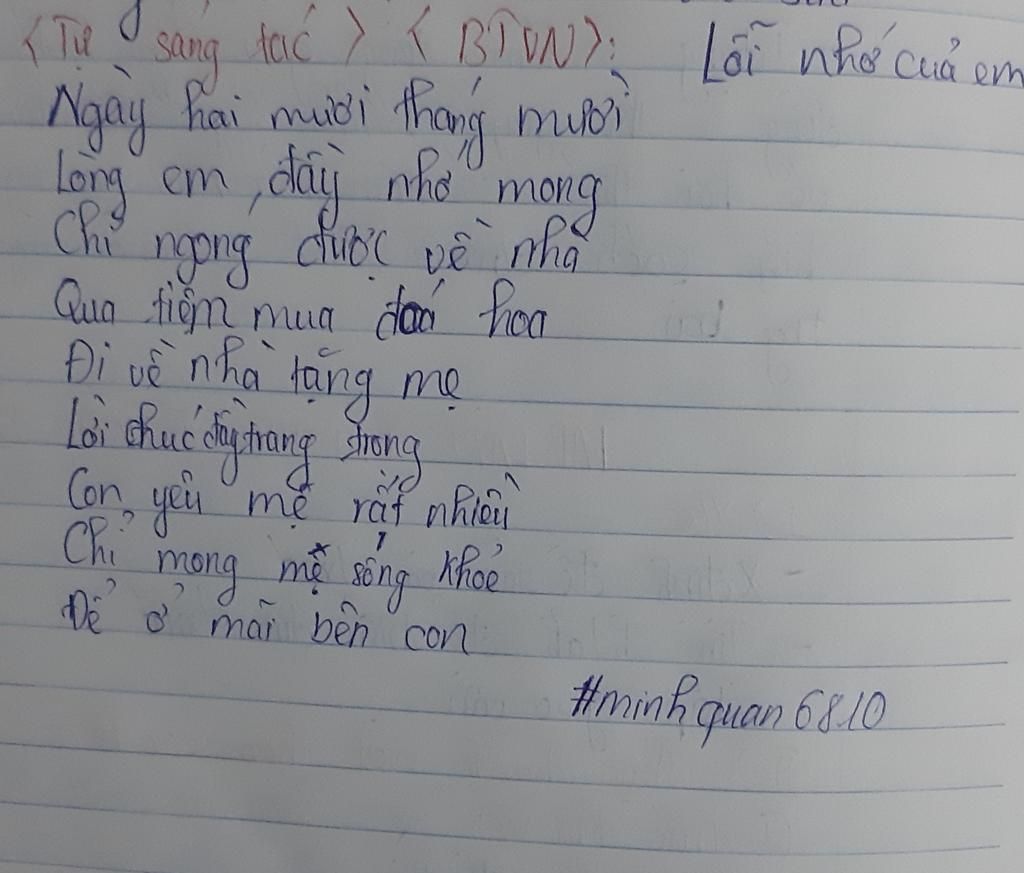 <Tự sáng tác> <BTVN>: Lỗi nhớ của em
Ngày hai mươi tháng mười
Lòng em, đầy nhớ mong
Chỉ ngóng được về nhà
Qua tiệm mua đoá hoa
Đi về nhà tặng mẹ
Lời chúc đầy trang trọng
Con yêu mẹ rất nhiều
Chỉ mong mẹ sống khoẻ
Để ở mãi bên con
#minhquan6810